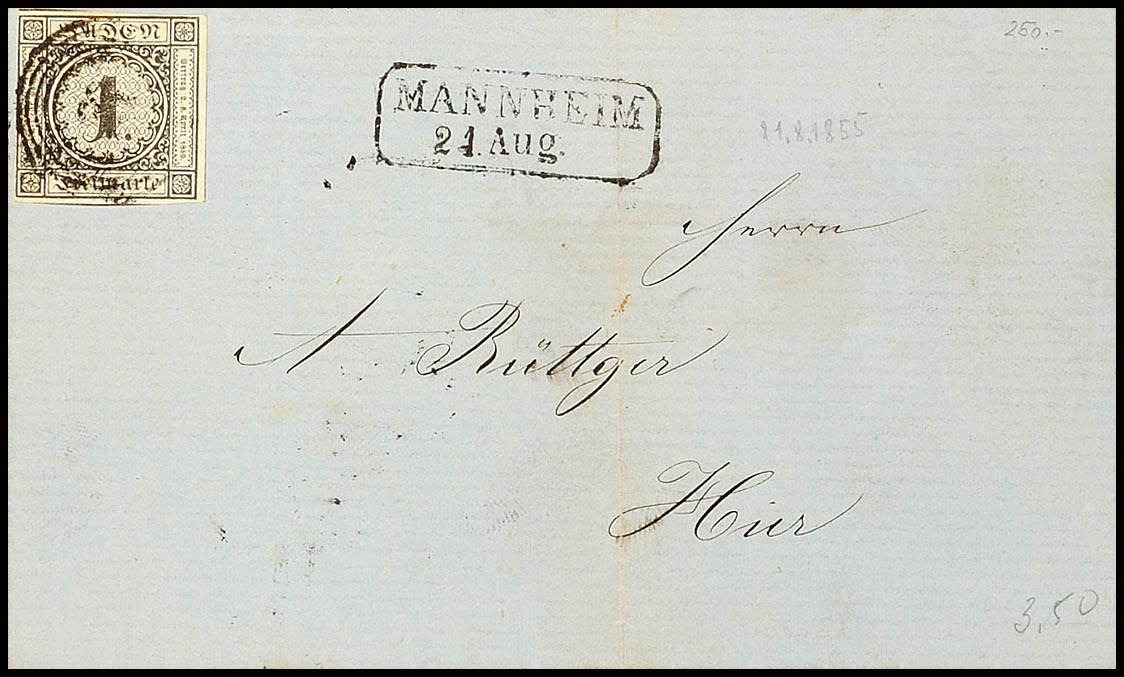 BADEN
1
Freimarke
250.-
MANNHEIM
21. Aug.
21.8.1855
Herrn
A Rüttger
Hier
3,50